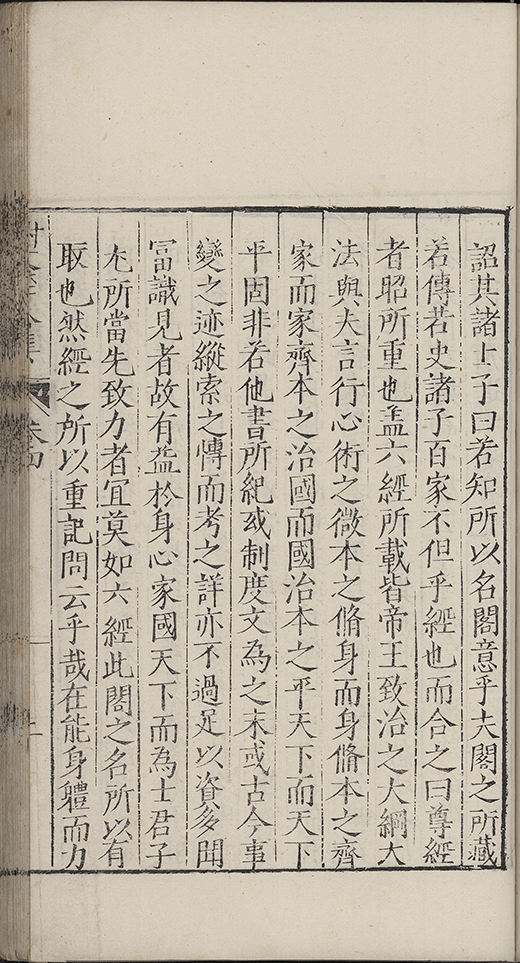 詔其諸上子曰若知所以名閣意乎夫閣之所藏
若傳若史諸子百家不但乎經也而合之曰尊經
者昭所重也盖六經所載皆帝王致治之大綱大
法與夫言行心術之微本之脩身而身脩本之齊
家而家齊本之治國而國治本之平天下而天下
平固非若他書所紀或制度文為之末或古今事
變之迹縱索之慱而考之詳亦不過足以資多聞
冨識見者故有益於身心家國天下而為士君子
尢所當先致力者宜莫如六經此閣之名所以有
取也然經之所以重記問云乎哉在能身體而力
卷四